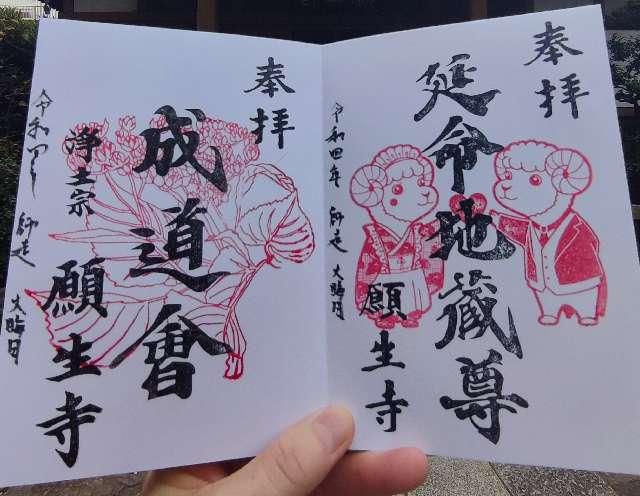 奉拝
延命地蔵尊
令和四年 師走 大晦日
願生寺
奉拝
成道會
浄土宗
願生寺
令和四年 師走 大晦日